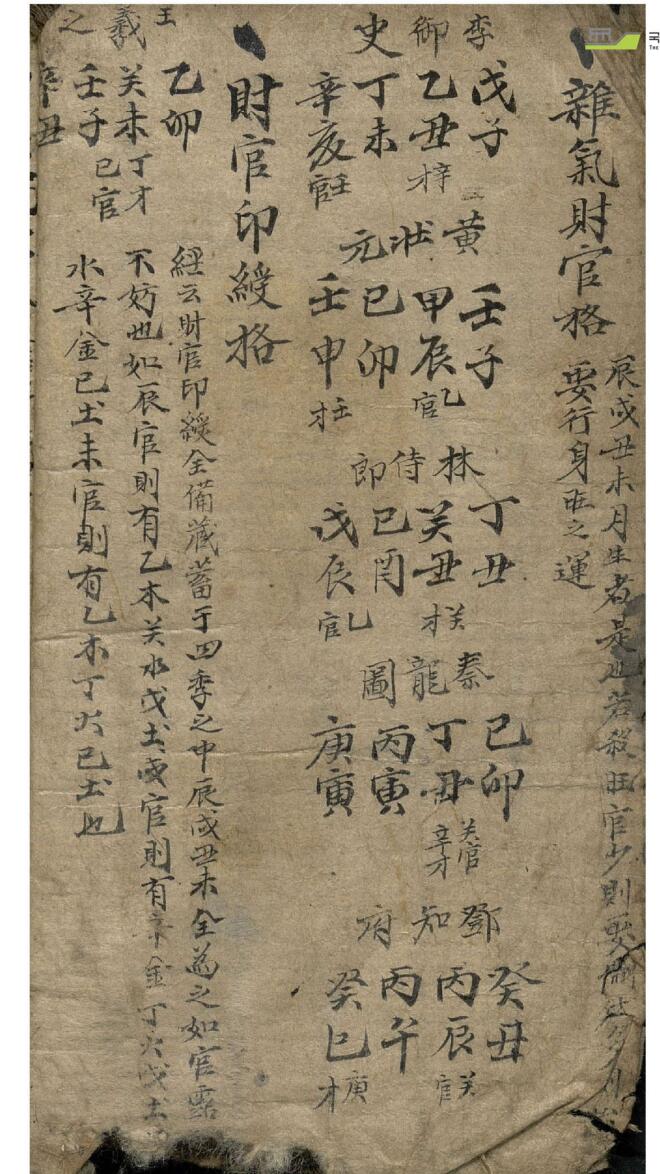 雜氣財官格
辰戌丑未月生者是也若殺旺官少則要
要行身旺之運
李御史
戊子
乙丑 才辛
丁未
辛亥 官壬
黃狀元
壬子
甲辰 官乙
己卯
壬申 才壬
林侍郎
丁丑
癸丑 才癸
己酉
戊辰 官乙
秦龍圖
己卯
丁丑 癸官辛才
丙寅
庚寅
鄧知府
癸丑
丙辰 官癸
丙午
癸巳 才庚
財官印綬格
經云財官印綬全備藏蓄于四季之中辰戌丑未全為之如官露
不妨也如辰宮則有乙木癸水戊土戌官則有辛金丁火戊土
水辛金己土未官則有乙木丁火己土也
王羲之
乙卯
癸未 丁才己官
壬子
辛丑